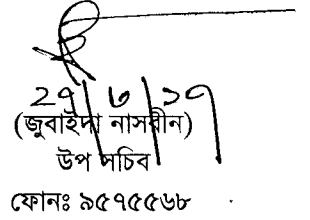 ২৭/৬/১৭
(জুবাইদা নাসরীন)
উপ সচিব
ফোনঃ ৯৫৭৫৫৬৮